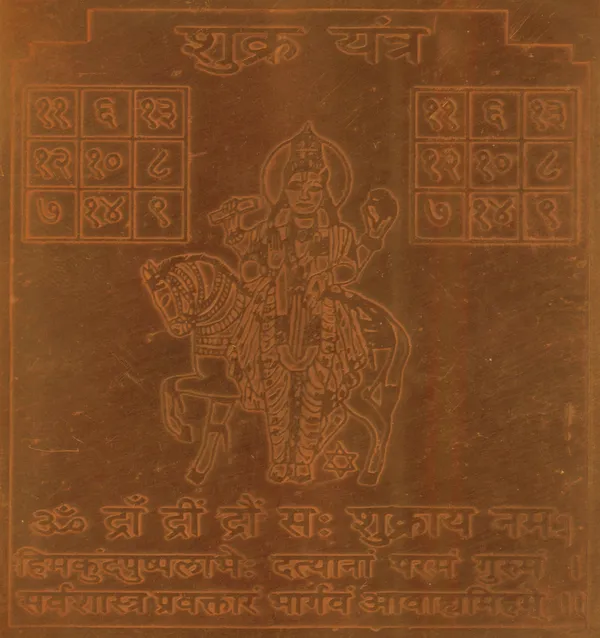 शुक्र यंत्र
११ ६ १३
१२ १० ८
७ १४ ९
११ ६ १३
१२ १० ८
७ १४ ९
ॐ द्राँ द्रीं द्रौं सः शुक्राय नमः
हिमकुंदपुष्पलाभेः दत्यानां परमं गुरुमं ।
सर्वशास्त्र प्रवक्तारं भार्गवं आवाह्यमिहमे ।।